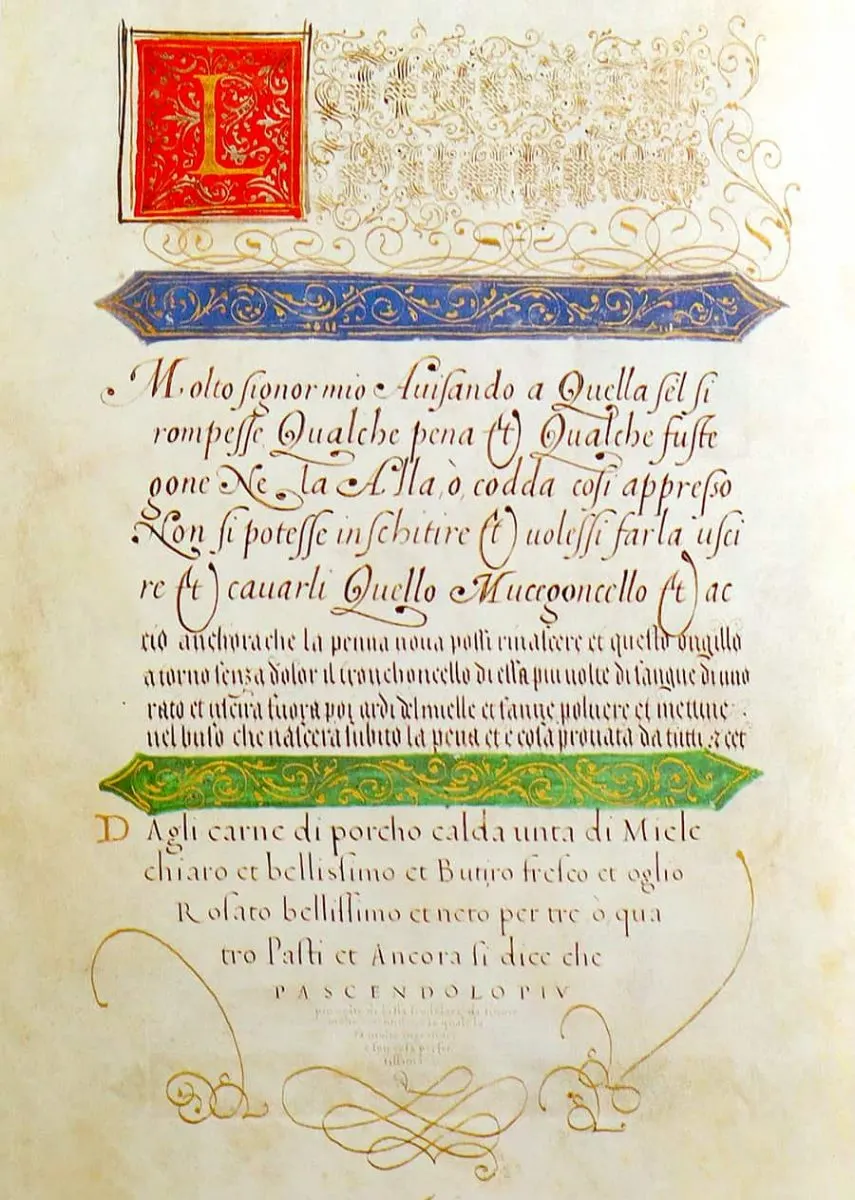 L
Molto signor mio Auisando a Quella sél si
rompesse Qualche pena et Qualche fuste
gone Ne la Alla, ò, codda cosi appresso
Non si potesse inschitire et uolessi farla usci
re et cauarli Quello Mucegoncello et ac
ciò anchora che la penna noua possi rinascere et questo ongillo
atorno senza dolor il tronchoncello di essa piu uolte di sangue di uno
rato et uscira fuora poi ardi del miele et fanne poluere et mettine
nel buso che nascera subito la pena et e cosa prouata da tutti & cet
DAgli carne di porcho calda unta di Miele
chiaro et bellissimo et Butiro fresco et oglio
Rosato bellissimo et neto per tre ò qua
tro Pasti et Ancora si dice che
PASCENDOLO PIV